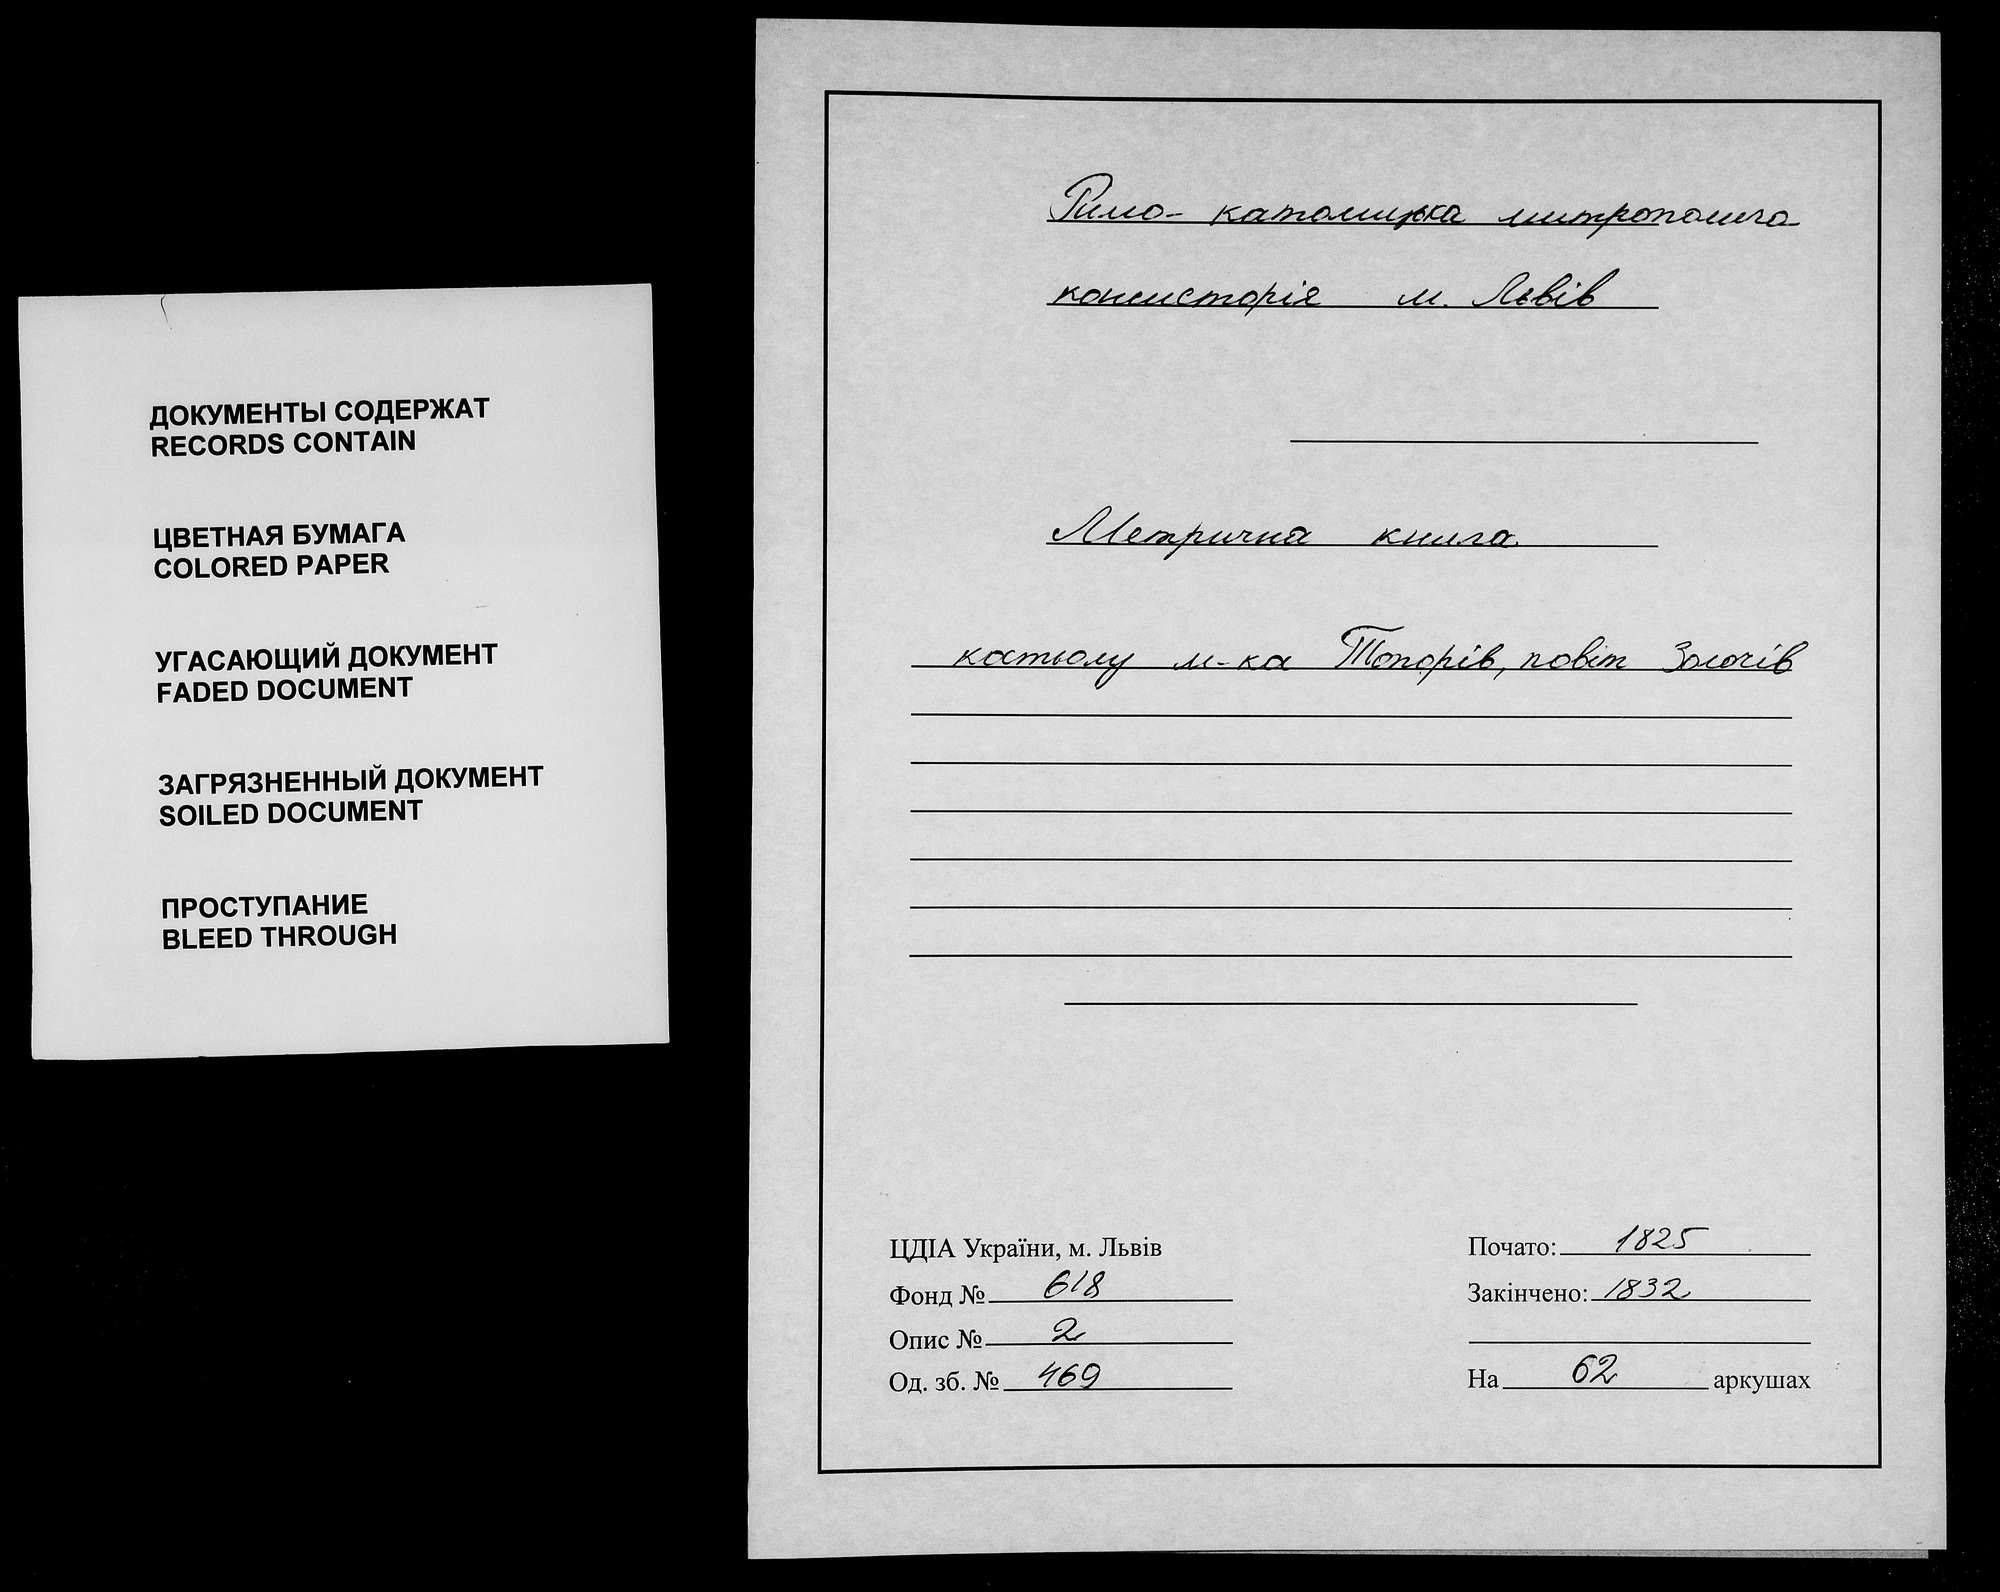 ДОКУМЕНТЫ СОДЕРЖАТ
RECORDS CONTAIN
ЦВЕТНАЯ БУМАГА
COLORED PAPER
УГАСАЮЩИЙ ДОКУМЕНТ
FADED DOCUMENT
ЗАГРЯЗНЕННЫЙ ДОКУМЕНТ
SOILED DOCUMENT
ПРОСТУПАНИЕ
BLEED THROUGH
Римо-католицька митрополича
консисторія м. Львів
Метрична книга
костьолу м-ка Топорів, повіт Золочів
ЦДІА України, м. Львів
Фонд № 618
Опис № 2
Од. зб. № 469
Почато: 1825
Закінчено: 1832
На 62 аркушах